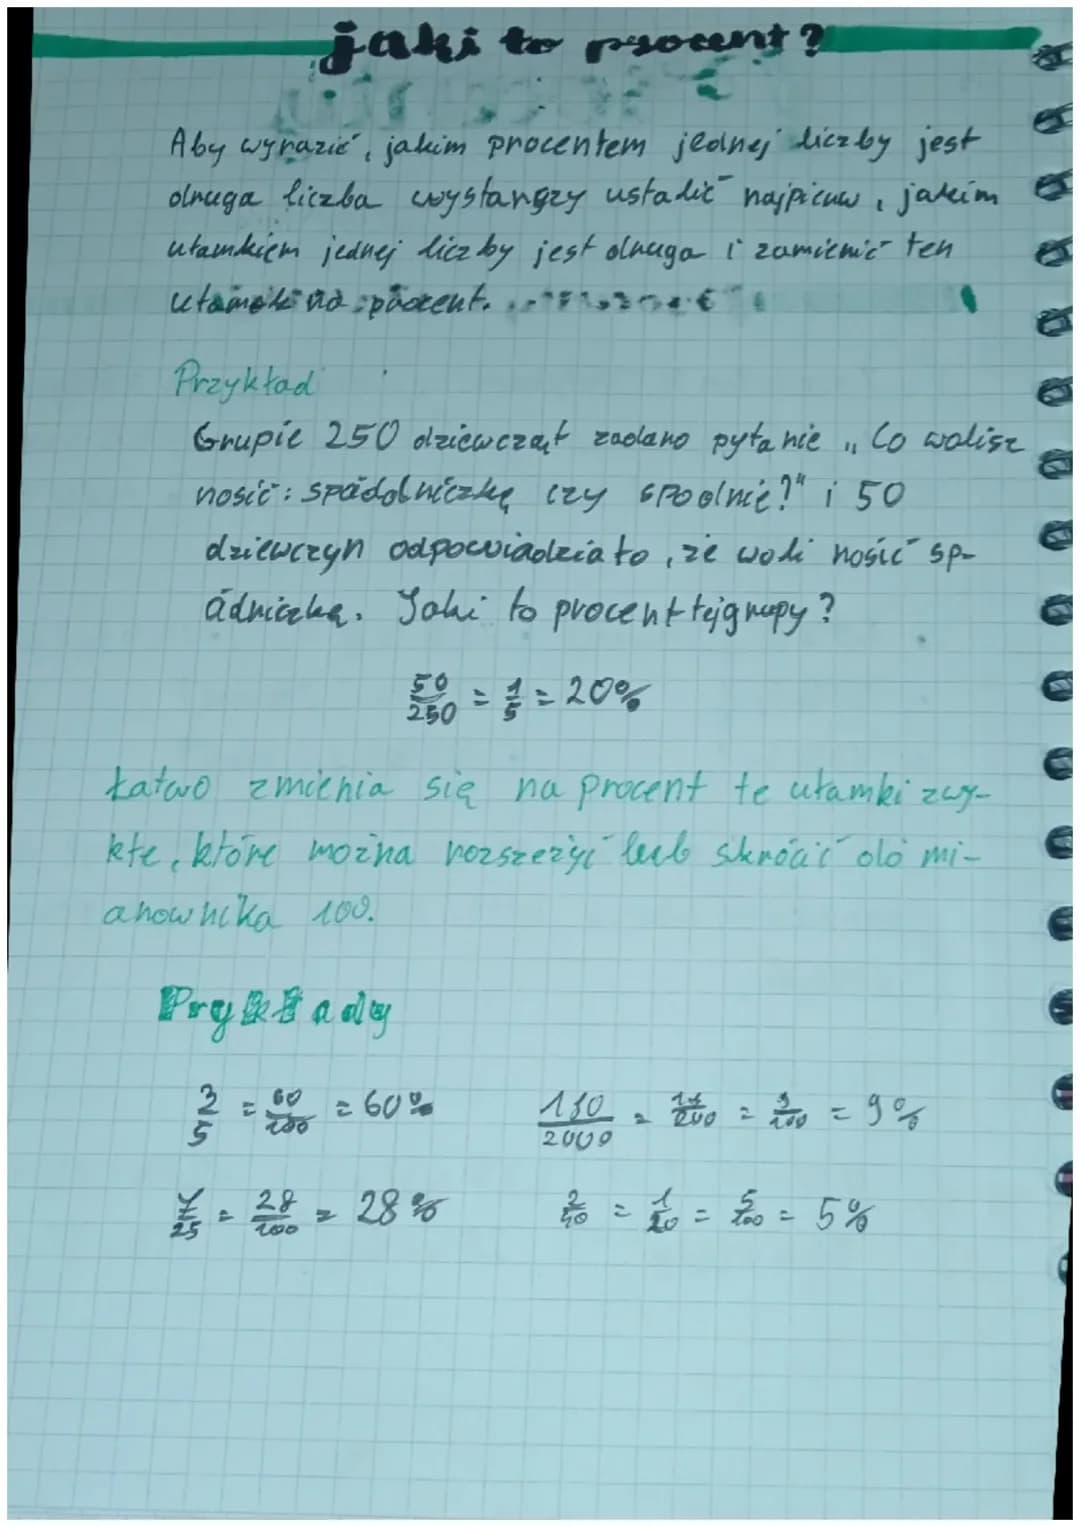 jaki to procent?
Aby wyrazić, jakim procentem jednej liczby jest
druga liczba wystarczy ustalić najpierw, jakim
ułamkiem jednej liczby jest druga i zamienić ten
ułamek na procent.
Przykład
Grupie 250 dziewcząt zadano pytanie „Co wolisz
nosić: spódniczkę czy spodnie?" i 50
dziewczyn odpowiedziało, że woli nosić sp-
ódniczkę. Jaki to procent tej grupy?
50/250 = 1/5 = 20%
Łatwo zmienia się na procent te ułamki zwy-
kłe, które można rozszerzyć lub skrócić do mi-
anownika 100.
Przykłady
3/5 = 60/100 = 60% 180/2000 = 18/200 = 9/100 = 9%
7/25 = 28/100 = 28% 2/40 = 1/20 = 5/100 = 5%